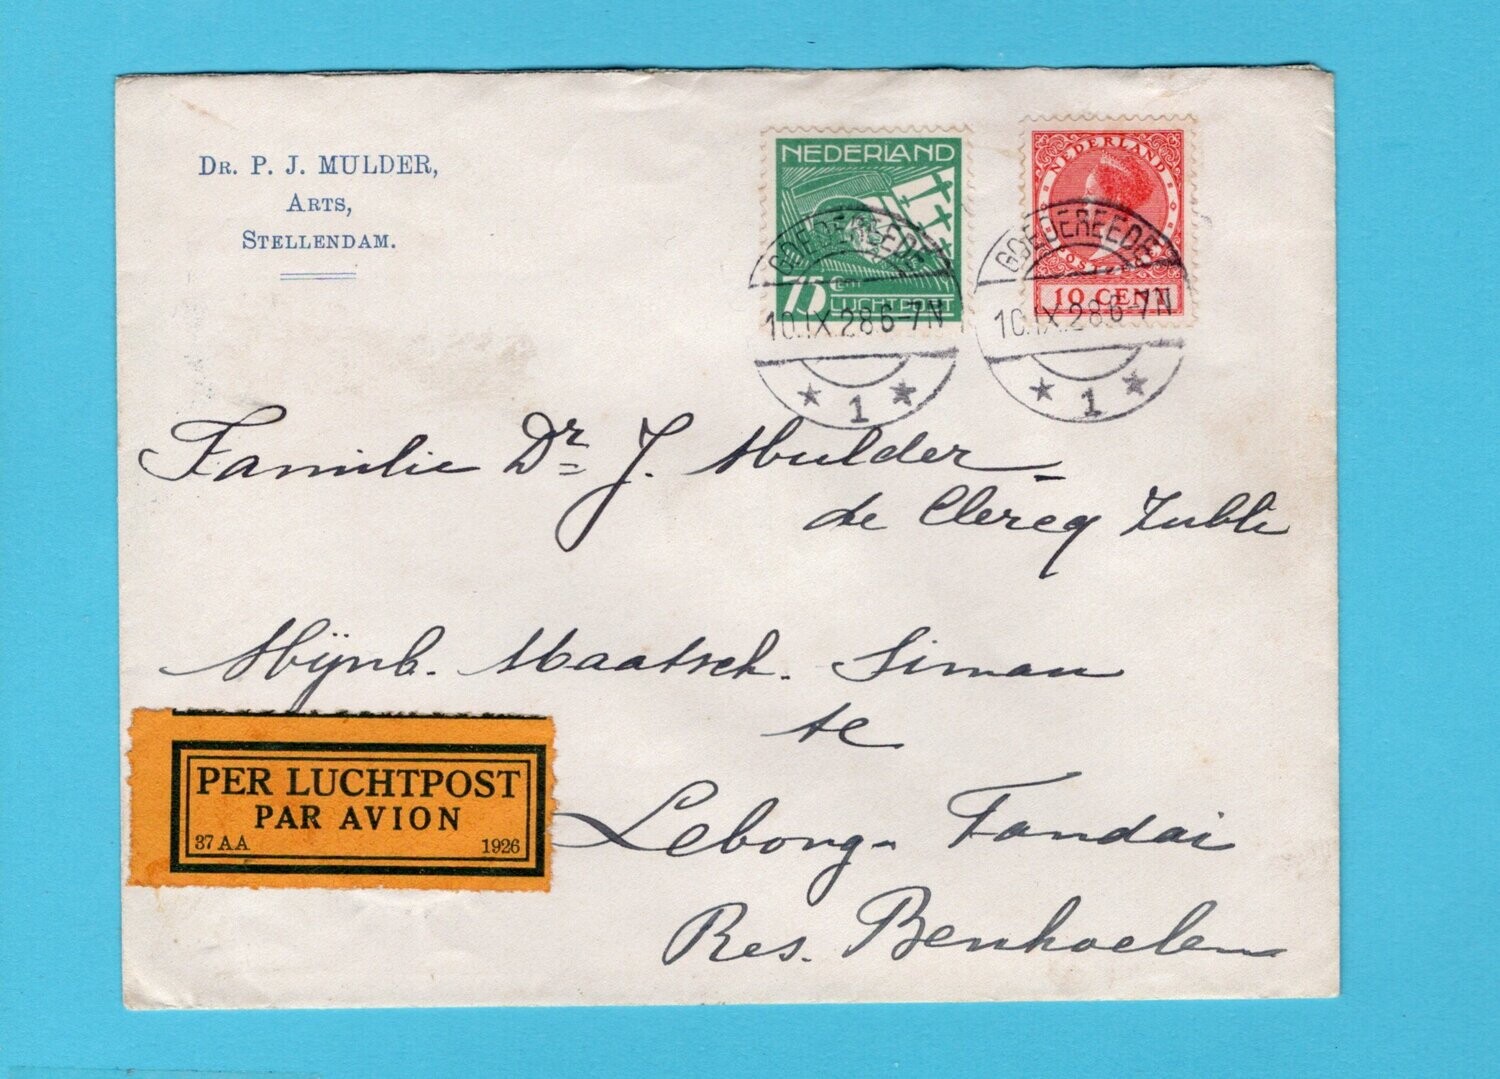 Dr. P. J. MULDER,
Arts,
Stellendam.
NEDERLAND
75 cnt
LUCHTPOST
NEDERLAND
10 CENT
GOEDEREEDE
10.IX.28 6-7N
1
GOEDEREEDE
10.IX.28 6-7N
1
Familie Dr J. Mulder
de Clercq Zubli
Mijnb. Maatsch. Simau
te
Lebong-Tandai
Res. Benkoelen
PER LUCHTPOST
PAR AVION
37 A.A 1926